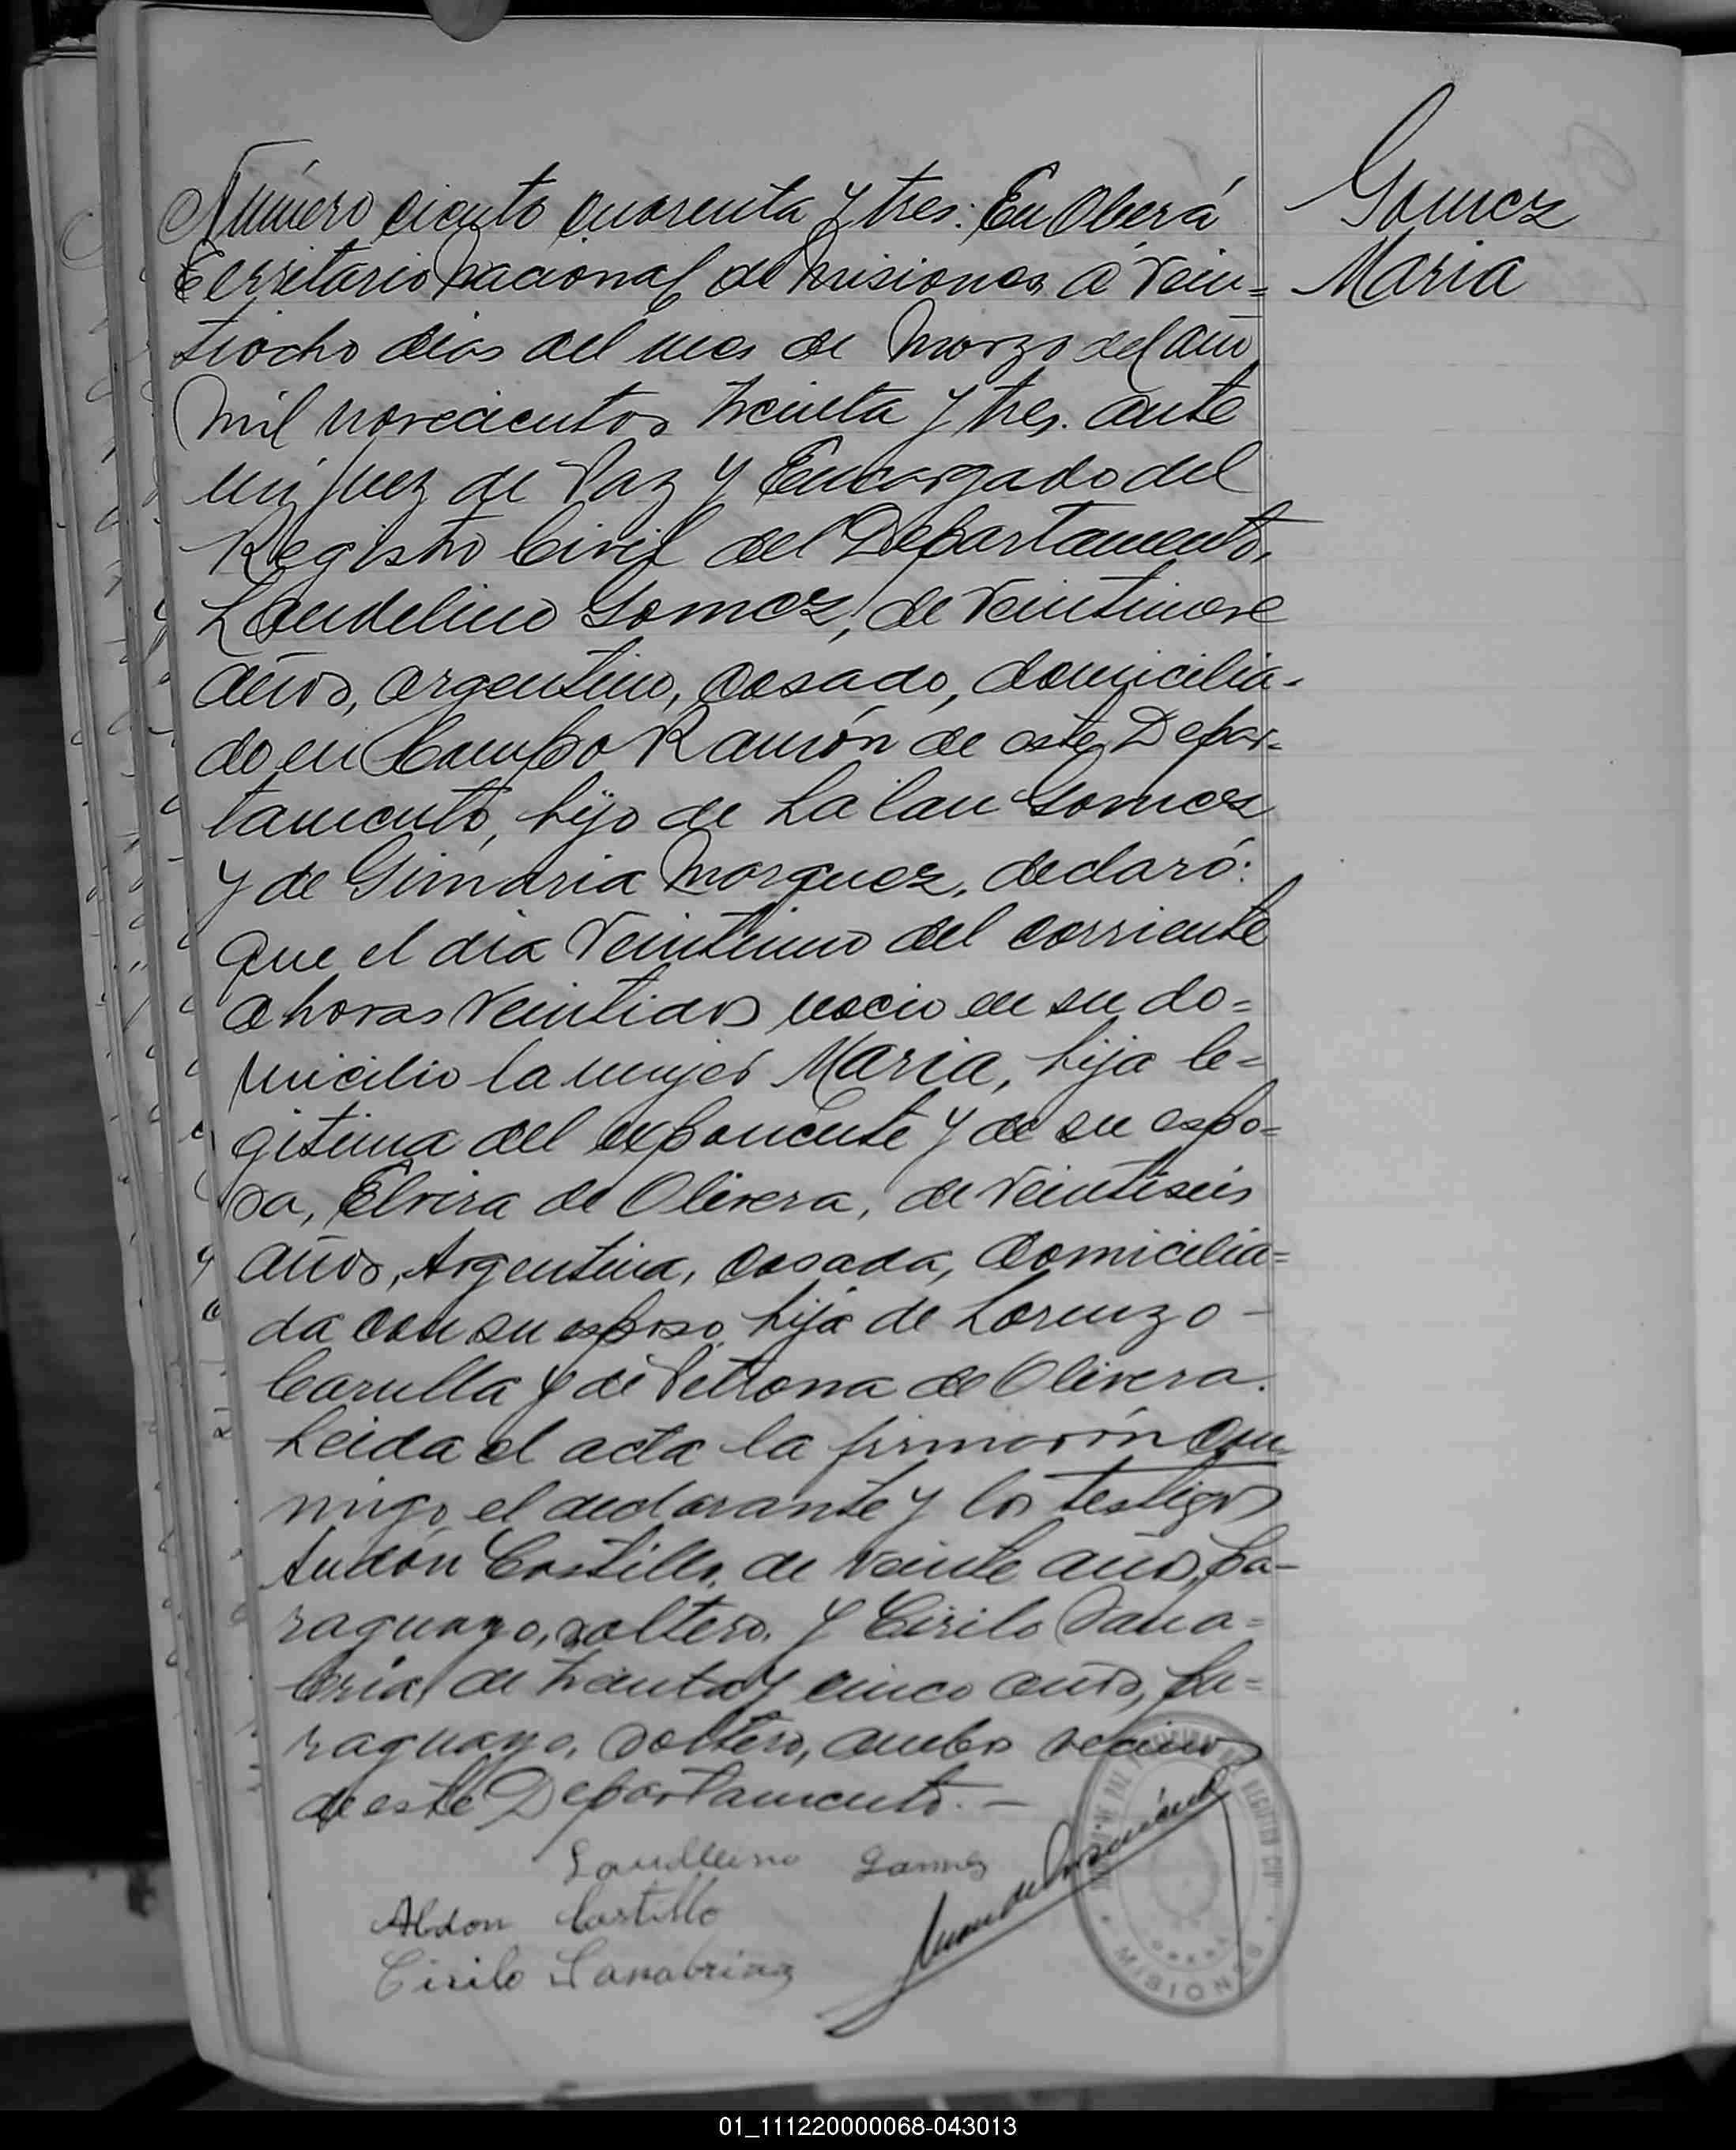 Gomez
Maria
Número ciento cuarenta y tres: En Oberá
Territorio Nacional de Misiones a vein=
tiocho dias del mes de Marzo del año
mil novecientos treinta y tres. ante
mi Juez de Paz y Encargado del
Registro Civil del Departamento,
Laudelino Gomez, de veintinueve
años, argentino, casado, domicilia-
do en Campo Ramón de este Depar-
tamento, hijo de Lalau Gomez
y de Gimaria Marquez, declaró:
que el dia veintiuno del corriente
a horas veintidos nacio en su do=
micilio la mujer Maria, hija le=
gitima del exponente y de su espo=
sa, Elvira de Olivera, de veintiseis
años, Argentina, casada, domicilia=
da con su esposo, hija de Lorenzo -
Carulla y de Petrona de Olivera.
Leida el acta la firmarón con
migo el declarante y los testigos
Audón Castillo, de veinte años, pa-
raguayo, soltero. y Cirilo Sana=
bria, de treinta y cinco años, pa=
raguayo, soltero, ambos vecinos
de este Departamento. -
Laudelino Gomes
Abdon Castillo
Cirilo Sanabria
DE PAZ
REGISTRO CIVIL
OBERÁ
MISIONES
01_111220000068-043013